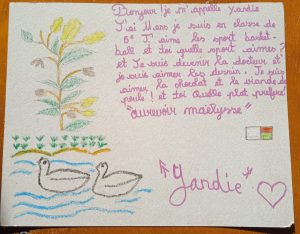 Bonjour! je m'appelle Yardie
J'ai 11ers je suis en classe de
5e J'aime les sport basket-
ball et toi quelle sport aimes?
et Je suis devenir la docteur et
je suis aimer les dessin. Je suis
aimer la chocolat et le viande de
poule! et toi Quelle plat préféré
"aurevoir maelysse"
"Yardie"